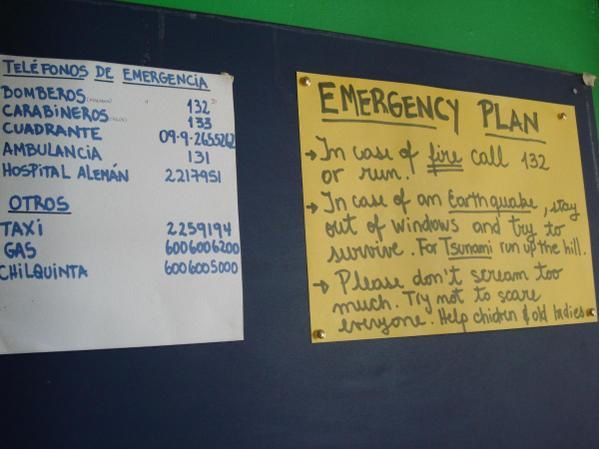 TELÉFONOS DE EMERGENCIA
BOMBEROS 132
CARABINEROS 133
CUADRANTE 09-9-2655262
AMBULANCIA 131
HOSPITAL ALEMÁN 2217951
OTROS
TAXI 2259194
GAS 6006006200
CHILQUINTA 6006005000
EMERGENCY PLAN
→ In case of fire call 132
or run.
→ In case of an Earthquake, stay
out of windows and try to
survive. For Tsunami run up the hill.
→ Please don't scream too
much. Try not to scare
everyone. Help children & old ladies